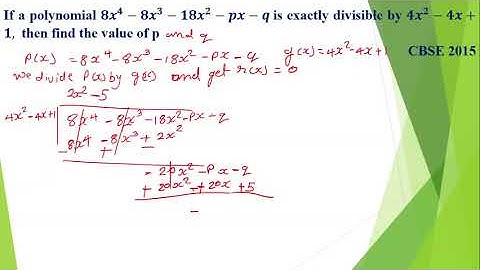 If a polynomial 8x⁴ − 8x³ − 18x² − px − q is exactly divisible by 4x² − 4x +
1, then find the value of p and q
CBSE 2015
P(x) = 8x⁴ − 8x³ − 18x² − px − q g(x) = 4x² − 4x + 1
we divide P(x) by g(x) and get r(x) = 0
2x² − 5
4x² − 4x + 1 8x⁴ − 8x³ − 18x² − px − q
8x⁴ − 8x³ + 2x²
− + −
− 20x² − px − q
+ 20x² + 20x + 5
−